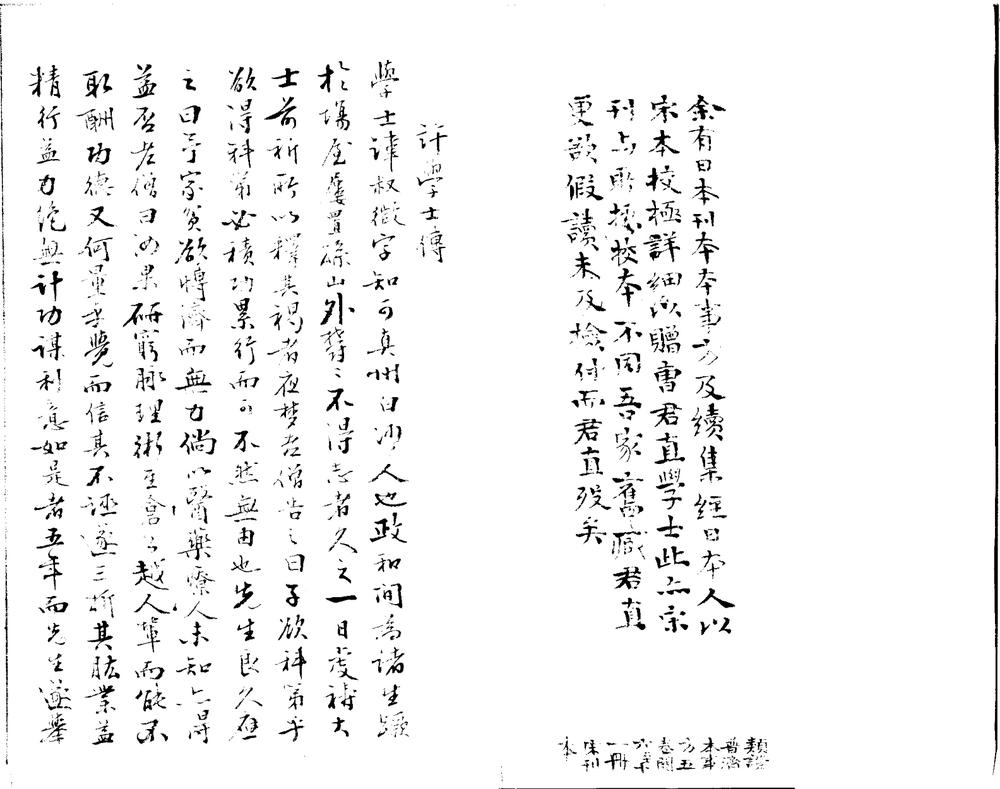 余有日本刊本本事方及續集經日本人以
宋本校極詳細以贈曹君直學士此亦宋
刊与所據校本不同吾家舊藏君直
更欲假讀未及檢付而君直歿矣
類證
普濟
本事
方五
卷
一冊
宋刊
本
許學士傳
學士諱叔微字知可真州白沙人也政和間為諸生躓
於場屋屢置孫山外鬱々不得志者久之一日虔禱大
士前祈所以釋其褐者夜梦老僧告之曰子欲科第乎
欲得科第必積功累行而可不然無由也先生良久應
之曰予家貧欲博濟而無力倘以醫藥療人未知亦得
益否老僧曰汝果研窮脉理術至倉公越人輩而能不
取酬功德又何量乎覺而信其不誣遂三折其肱業益
精行益力絶無計功謀利意如是者五年而先生遂舉